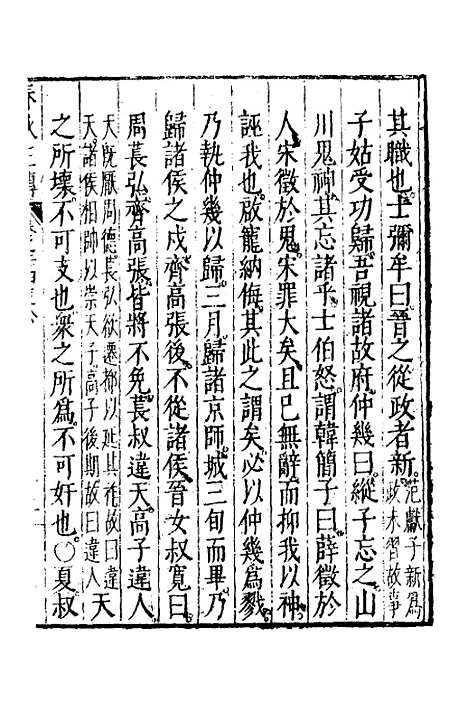 其職也士彌牟曰晉之從政者新范獻子新為政未習故事
子姑受功歸吾視諸故府仲幾曰縱子忘之山
川鬼神其忘諸乎士伯怒謂韓簡子曰薛徵於
人宋徵於鬼宋罪大矣且已無辭而抑我以神
誣我也啟寵納侮其此之謂矣必以仲幾為戮
乃執仲幾以歸三月歸諸京師城三旬而畢乃
歸諸侯之戍齊高張後不從諸侯晉女叔寬曰
周萇弘齊高張皆將不免萇叔違天高子違人
天既厭周德萇弘欲遷都以延其祚故曰違天諸侯相帥以崇天子高子後期故曰違人天
之所壞不可支也眾之所為不可奸也○夏叔
秋三傳